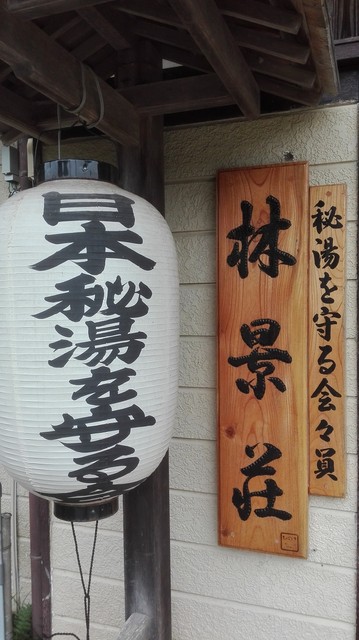 日本秘湯を守る
林景荘
秘湯を守る会々員